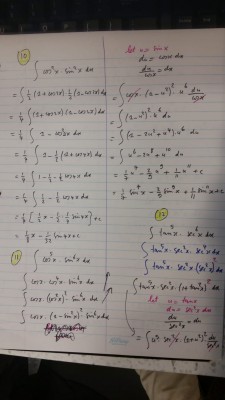 10
∫ cos²x · sin²x dx
= ∫ ½(1+cos2x) ½(1-cos2x) dx
= ¼ ∫ (1+cos2x)(1-cos2x) dx
= ¼ ∫ 1 - cos²2x dx
= ¼ ∫ 1 - ½(1+cos4x) dx
= ¼ ∫ 1 - ½ - ½ cos4x dx
= ¼ ∫ ½ - ½ cos4x dx
= ¼ [½x - ½ · ¼ sin4x] + c
= ⅛x - 1/32 sin4x + c
11
∫ cos⁵x · sin⁶x dx
∫ cosx · cos⁴x · sin⁶x dx
∫ cosx · (cos²x)² · sin⁶x dx
∫ cosx · (1 - sin²x)² · sin⁶x dx
let u = sinx
du = cosx dx
du/cosx = dx
= ∫ cosx · (1-u²)² · u⁶ du/cosx
= ∫ (1-u²)² · u⁶ du
= ∫ (1 - 2u² + u⁴) · u⁶ du
= ∫ u⁶ - 2u⁸ + u¹⁰ du
= 1/7 u⁷ - 2/9 u⁹ + 1/11 u¹¹ + c
= 1/7 sin⁷x - 2/9 sin⁹x + 1/11 sin¹¹x + c
12
∫ tan³x · sec⁶x dx
∫ tan³x · sec²x · sec⁴x dx
∫ tan³x · sec²x (sec²x)² dx
∫ tan³x · sec²x · (1+tan²x)² dx
let u = tanx
du = sec²x dx
du/sec²x = dx